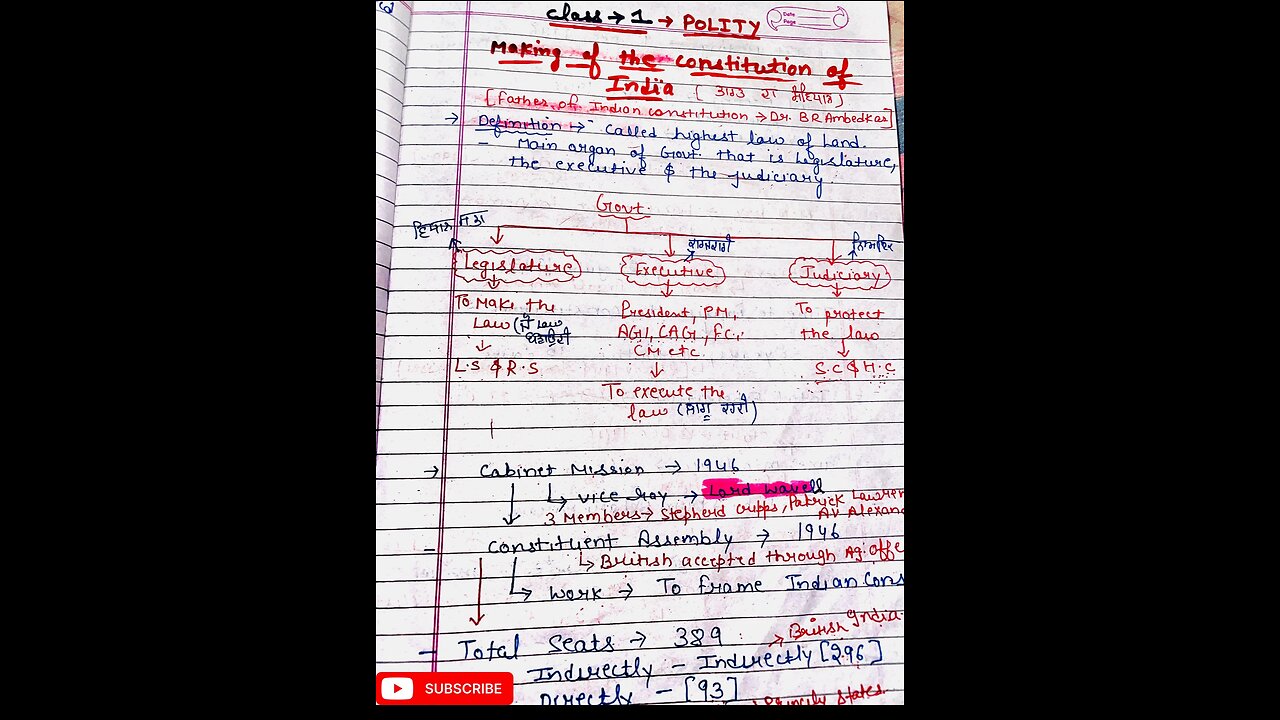 class → 1 → POLITY
Date
Page
Making of the constitution of
India
[Father of Indian constitution → Dr. B R Ambedkar]
→ Definition → - called highest law of Land.
- Main organ of Govt. that is legislature,
the executive & the judiciary.
Govt.
Legislature Executive Judiciary
To Make the
Law
L.S & R.S
President, PM,
AGI, CAG, FC,
CM etc.
To execute the
law
To protect
the law
S.C & H.C
→ Cabinet Mission → 1946
↳ Vice Roy → Lord Wavell
3 Members → Stepherd cripps, Patrick Lawren
AV Alexand
- Constituent Assembly → 1946
↳ British accepted through Ag. offe
↳ Work → To frame Indian Cons
- Total Seats → 389
→ British India.
Indirectly - Indirectly [296]
Directly - [93]
Princily states.
SUBSCRIBE